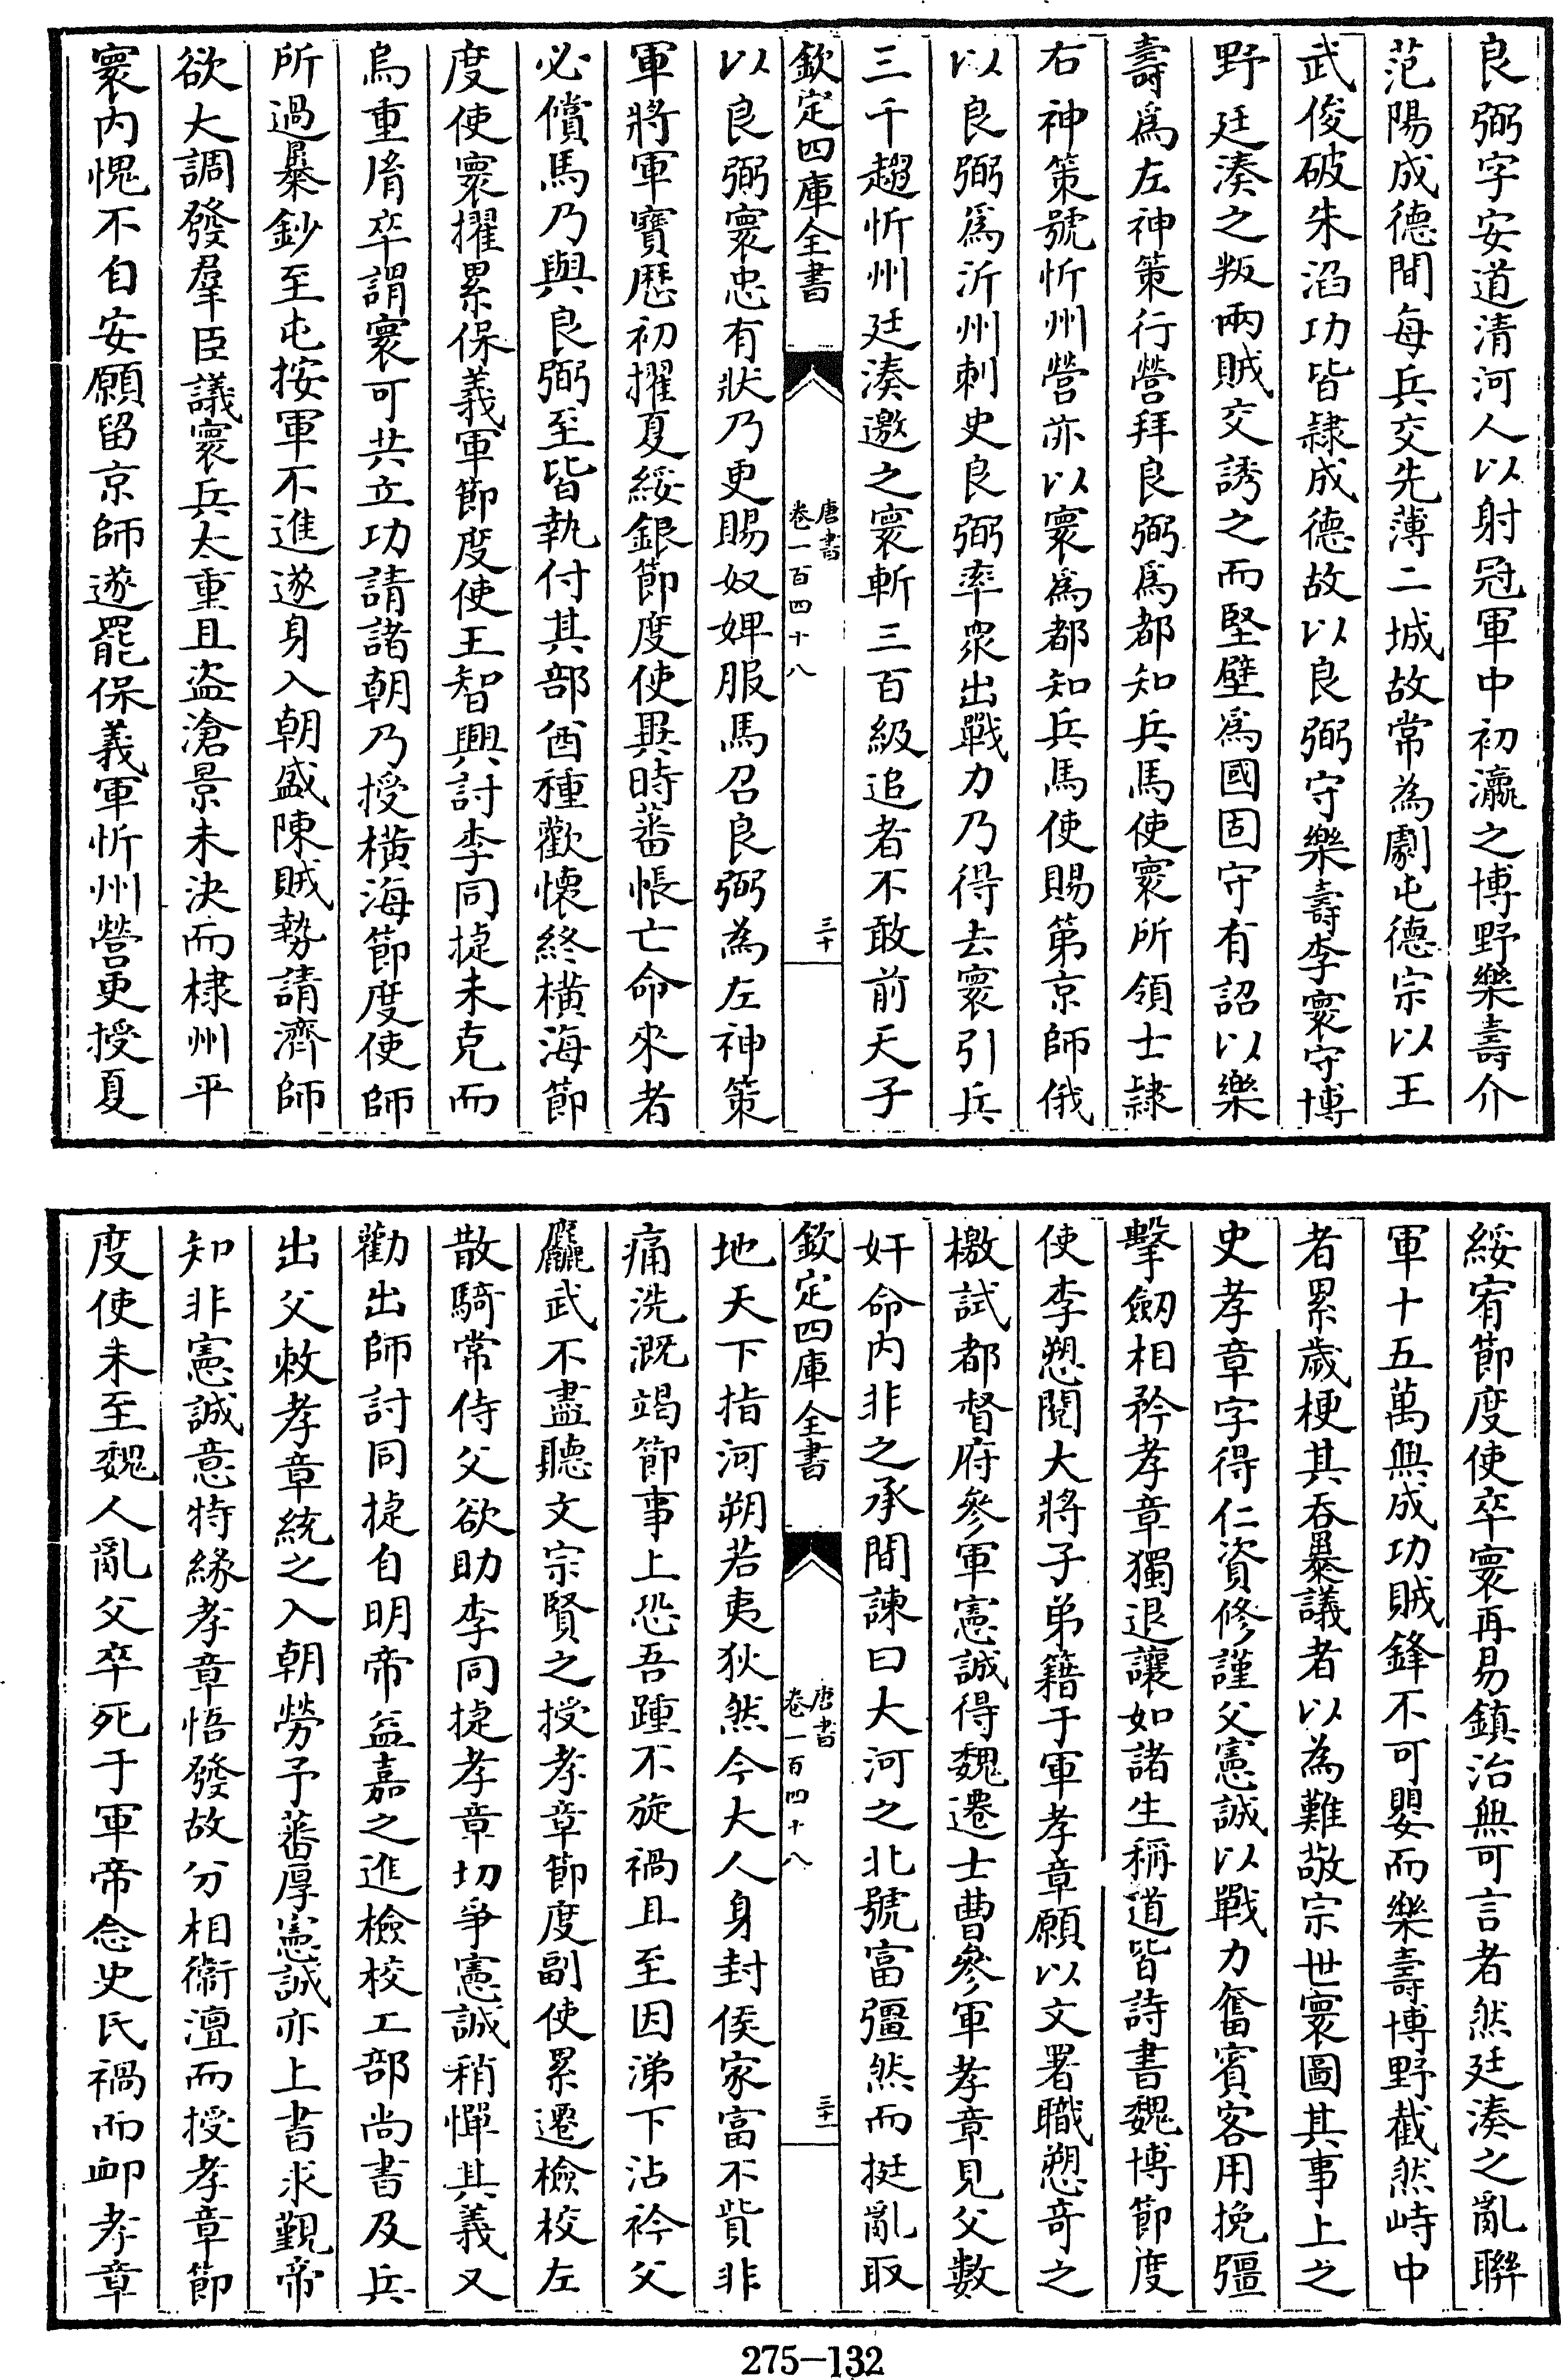 良弼字安道清河人以射冠軍中初瀛之博野樂壽介
范陽成德間每兵交先薄二城故常為劇屯德宗以王
武俊破朱滔功皆隷成德故以良弼守樂壽李寰守博
野廷湊之叛兩賊交誘之而堅壁爲國固守有詔以樂
壽爲左神策行營拜良弼爲都知兵馬使寰所領士隷
右神策號忻州營亦以寰爲都知兵馬使賜第京師俄
以良弼爲沂州刺史良弼率衆出戰力乃得去寰引兵
三千趨忻州廷湊邀之寰斬三百級追者不敢前天子
欽定四庫全書
唐書
卷一百四十八
三十
以良弼寰忠有狀乃更賜奴婢服馬召良弼為左神策
軍將軍寶歷初擢夏綏銀節度使異時蕃帳亡命來者
必償馬乃與良弼至皆執付其部酋種歡懷終橫海節
度使寰擢累保義軍節度使王智興討李同捷未克而
烏重胤卒謂寰可共立功請諸朝乃授橫海節度使師
所過暴鈔至屯按軍不進遂身入朝盛陳賊勢請濟師
欲大調發羣臣議寰兵太重且盜滄景未決而棣州平
寰内愧不自安願留京師遂罷保義軍忻州營更授夏
綏宥節度使卒寰再易鎮治無可言者然廷湊之亂聯
軍十五萬無成功賊鋒不可嬰而樂壽博野截然峙中
者累歲梗其吞暴議者以為難敬宗世寰圖其事上之
史孝章字得仁資修謹父憲誠以戰力奮賓客用挽彊
擊劒相矜孝章獨退讓如諸生稱道皆詩書魏博節度
使李愬閱大將子弟籍于軍孝章願以文署職愬奇之
檄試都督府參軍憲誠得魏遷士曹參軍孝章見父數
奸命内非之承間諫曰大河之北號富彊然而挺亂取
欽定四庫全書
唐書
卷一百四十八
三十一
地天下指河朔若夷狄然今大人身封侯家富不貲非
痛洗溉竭節事上恐吾踵不旋禍且至因涕下沾衿父
麤武不盡聽文宗賢之授孝章節度副使累遷檢校左
散騎常侍父欲助李同捷孝章切爭憲誠稍憚其義又
勸出師討同捷自明帝益嘉之進檢校工部尚書及兵
出父敕孝章統之入朝勞予蕃厚憲誠亦上書求覲帝
知非憲誠意特緣孝章悟發故分相衞澶而授孝章節
度使未至魏人亂父卒死于軍帝念史氏禍而卹孝章
275-132